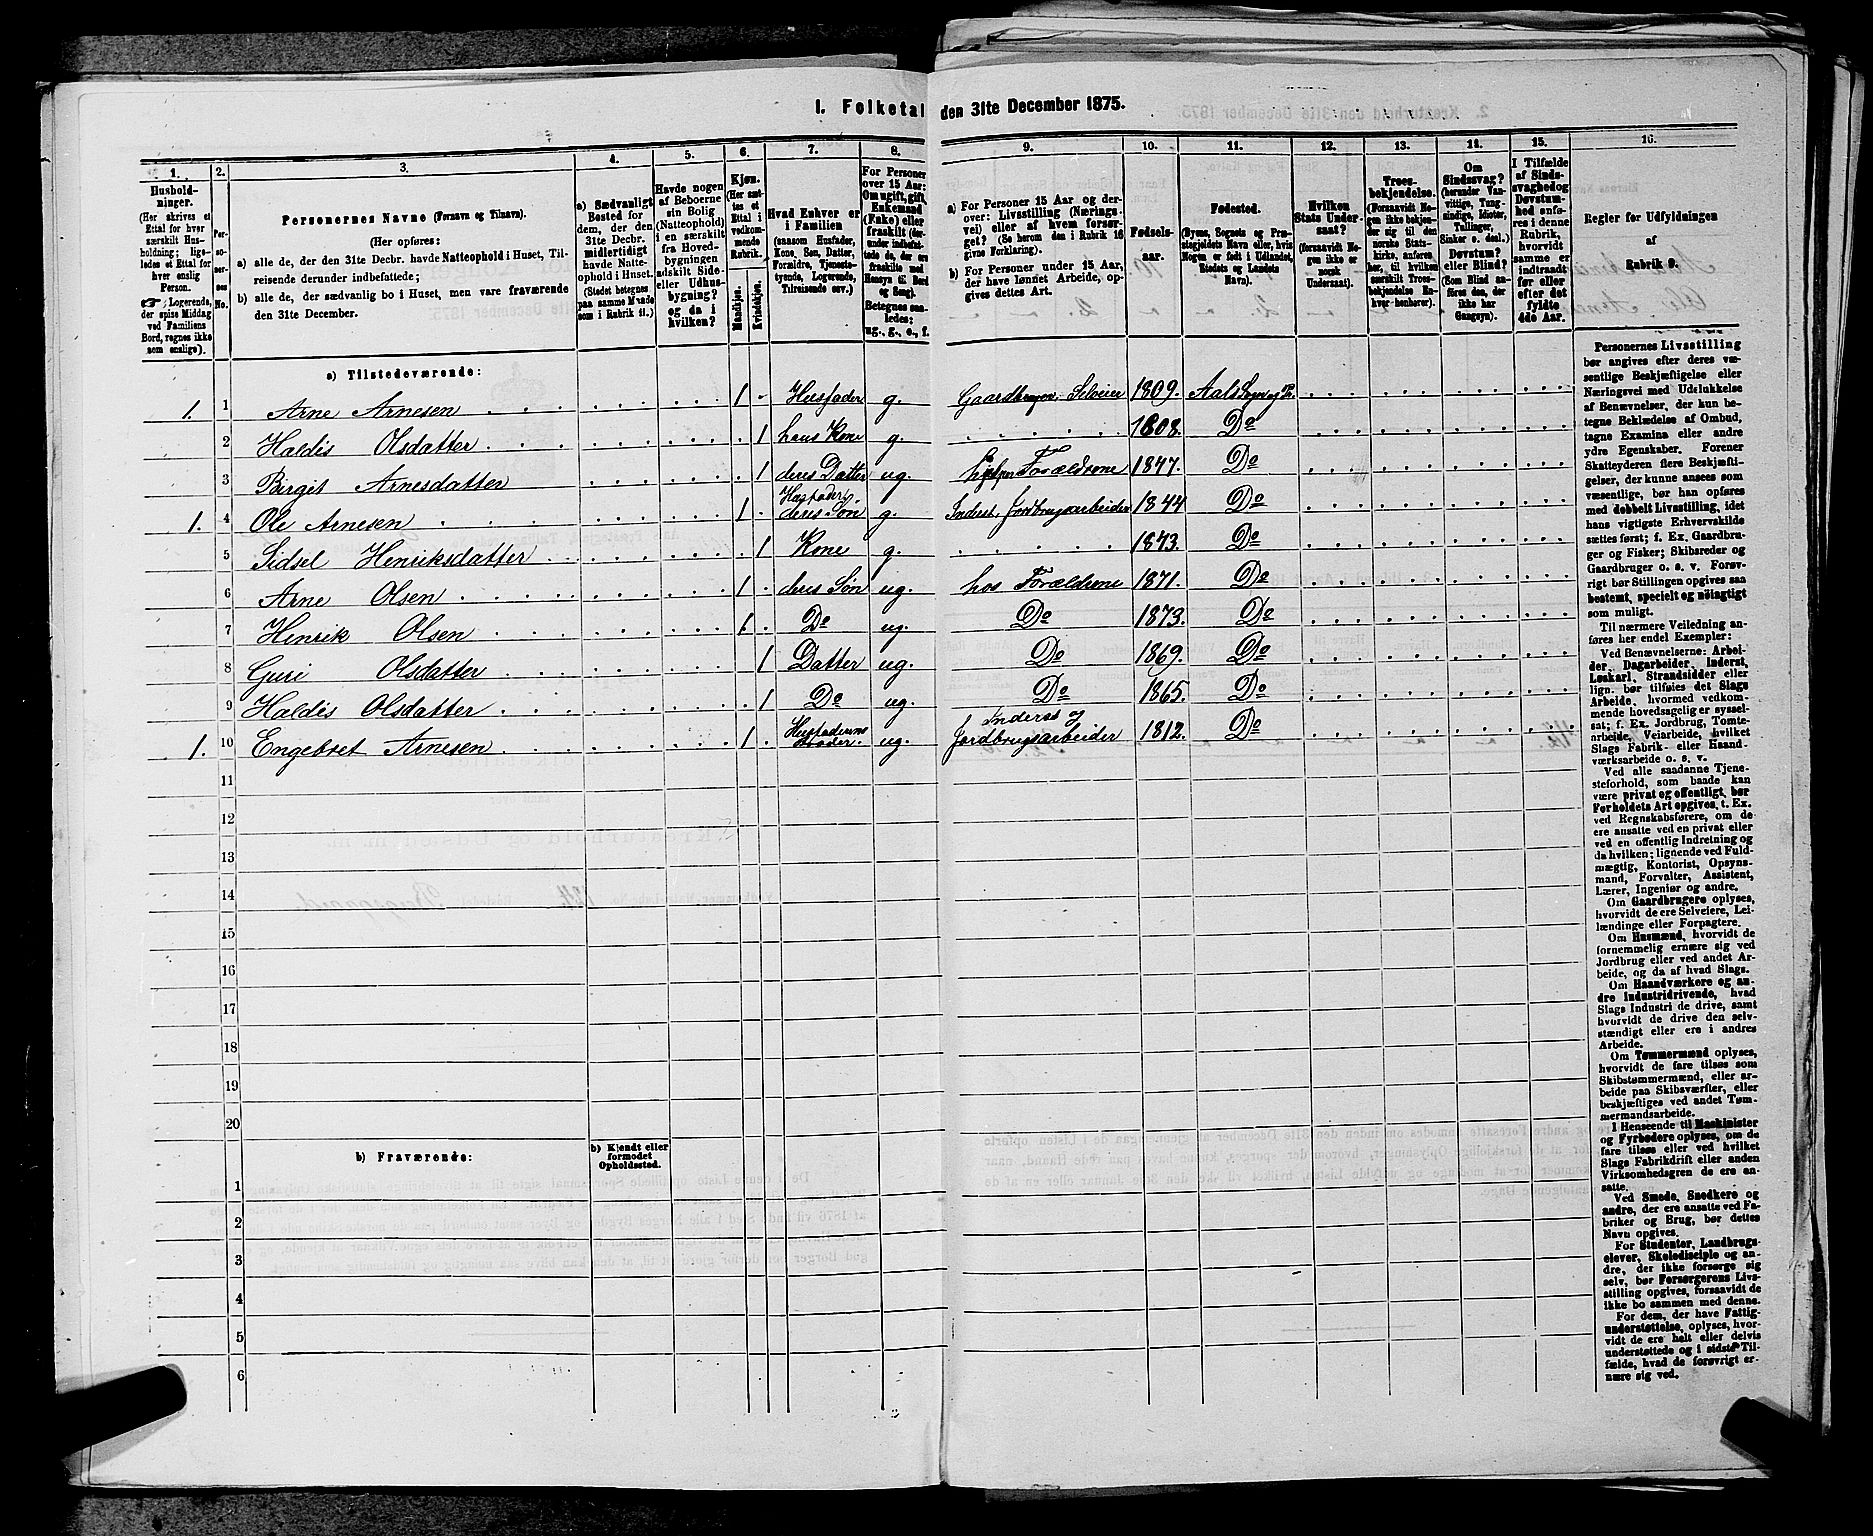 I. Folketal den 31te December 1875.
1. 2. 3. 4. 5. 6. 7. 8. 9. 10. 11. 12. 13. 14. 15. 16.
Hushold-
ninger.
(Her skrives et
Ettal for hver
særskilt Hus-
holdning; lige-
ledes et Ettal for
hver enslig
Person.
☞ Logerende,
der spise Middag
ved Familiens
Bord, regnes ikke
som enslige).
Per-
so-
ner-
nes
No.
Personernes Navne (Fornavn og Tilnavn).
(Her opføres:
a) alle de, der den 31te Decbr. havde Natteophold i Huset, Til-
reisende derunder indbefattede;
b) alle de, der sædvanlig bo i Huset, men vare fraværende
den 31te December.
a) Sædvanligt
Bosted for
dem, der den
31te Decbr.
midlertidigt
havde Natte-
ophold i Huset.
(Stedet betegnes
paa samme Maade
som i Rubrik 11.)
Havde nogen
af Beboerne
sin Bolig
(Natteophold)
i en særskilt
fra Hoved-
bygningen
adskilt Side-
eller Udhus-
bygning?
og da i
hvilken?
Kjøn.
(Her sæt-
tes et
Ettal i
vedkom-
mende
Rubrik.
Mandkjøn.
Kvindekjøn.
Hvad Enhver er
i Familien
(saasom Husfader,
Kone, Søn, Datter,
Forældre, Tjeneste-
tyende, Logerende,
Tilreisende osv.)
For Personer
over 15 Aar:
Om ugift, gift,
Enkemand
(Enke) eller
fraskilt (der-
under indbefat-
tede de, der ere
fraskilte med
Hensyn til Bord
og Seng).
Betegnes saa-
ledes:
ug., g., e., f.
a) For Personer 15 Aar og der-
over: Livsstilling (Nærings-
vei) eller af hvem forsør-
get? (Se herom den i Rubrik 16
givne Forklaring).
b) For Personer under 15 Aar,
der have lønnet Arbeide, op-
gives dettes Art.
Fødsels-
aar.
Fødested.
(Byens, Sognets og Præ-
stegjeldets Navn eller, hvis
Nogen er født i Udlandet,
Stedets og Landets
Navn).
Hvilken
Stats Under-
saat?
(forsaavidt No-
gen ikke er
norsk
Undersaat).
Troes-
bekjendelse.
(Forsaavidt No-
gen ikke bekjen-
der sig til den
norske Stats-
kirke, anføres
her, til hvilken
særskilt Troes-
bekjendelse En-
hver henhører).
Om
Sindssvag?
(herunder Van-
vittige, Tung-
sindige, Idioter,
Tullinger,
Sinker o. desl.)
Døvstum?
eller Blind?
(Som Blind an-
føres den, der
ikke har
Gangsyn).
I Tilfælde
af Sinds-
svaghed og
Døvstum-
hed anfø-
res i denne
Rubrik,
hvorvidt
samme er
indtraadt
før eller
efter det
fyldte
4de Aar.
Regler for Udfyldningen
af
Rubrik 9.
a) Tilstedeværende:
1. 1 Arne Arnesen 1 Husfader g. Gaardbruger Selveier 1809. Aals Sogn og Pr.
2 Haldis Olsdatter 1 hans Kone g. 1808. Do
3 Birgit Arnesdatter 1 deres Datter ug. Forældrene 1847. Do
1. 4 Ole Arnesen 1 Husfader, deres Søn g. Inderst, Jordbrugsarbeider 1844 Do
5 Sidsel Henriksdatter 1 Kone g. 1843. Do
6 Arne Olsen 1 deres Søn ug. hos Forældrene 1871. Do
7 Henrik Olsen 1 Do ug. Do 1873. Do
8 Guri Olsdatter 1 Datter ug. Do 1869. Do
9 Haldis Olsdatter 1 Do ug. Do 1865. Do
1. 10 Engebret Arnesen 1 Husfaderens Broder. ug. Inderst og Jordbrugsarbeider 1812. Do
11
12
13
14
15
16
17
18
19
20
b) Fraværende:
b) Kjendt eller
formodet
Opholdssted.
1
2
3
4
5
6
Personernes Livsstilling
bør angives efter deres væ-
sentlige Beskjæftigelse eller
Næringsvei med Udelukkelse
af Benævnelser, der kun be-
tegne Beklædelse af Ombud,
tagne Examina eller andre
ydre Egenskaber. Forener
Skatteyderen flere Beskjæfti-
gelser, der kunne ansees som
væsentlige, bør han opføres
med dobbelt Livsstilling, idet
hans vigtigste Erhvervskilde
sættes først; f. Ex. Gaardbru-
ger og Fisker; Skibsreder og
Gaardbruger o. s. v. Forøv-
rigt bør Stillingen opgives saa
bestemt, specielt og nøiagtigt
som muligt.
Til nærmere Veiledning an-
føres her endel Exempler:
Ved Benævnelserne: Arbei-
der, Dagarbeider, Inderst,
Løskarl, Strandsidder eller
lign. bør tilføies det Slags
Arbeide, hvormed vedkom-
mende hovedsagelig er syssel-
sat; f. Ex. Jordbrug, Tomte-
arbeide, Veiarbeide, hvilket
Slags Fabrik- eller Haand-
værksarbeide o. s. v.
Ved alle saadanne Tjene-
steforhold, som baade kan
være privat og offentligt, bør
Forholdets Art opgives, t. Ex.
ved Regnskabsførere, om de
ere ansatte ved en privat eller
ved en offentlig Indretning og
da hvilken; lignende ved Fuld-
mægtig, Kontorist, Opsyns-
mand, Forvalter, Assistent,
Lærer, Ingeniør og andre.
Om Gaardbrugere oplyses,
hvorvidt de ere Selveiere, Lei-
lændinge eller Forpagtere.
Om Husmænd, hvorvidt de
fornemmelig ernære sig ved
Jordbrug eller ved andet Ar-
beide, og da af hvad Slags.
Om Haandværkere og an-
dre Industridrivende, hvad
Slags Industri de drive, samt
hvorvidt de drive den selv-
stændigt eller ere i andres
Arbeide.
Om Tømmermænd oplyses,
hvorvidt de fare tilsøs som
Skibstømmermænd, eller ar-
beide paa Skibsværfter, eller
beskjæftiges ved andet Tøm-
mermandsarbeide.
I Henseende til Maskinister
og Fyrbødere oplyses, om de
fare tilsøs eller ved hvilket
Slags Fabrikdrift eller anden
Virksomhedsgren de ere an-
satte.
Ved Smede, Snedkere og
andre, der ere ansatte ved Fa-
briker og Brug, bør dettes
Navn opgives.
For Studenter, Landbrugs-
elever, Skoledisciple og an-
dre, der ikke forsørge sig
selv, bør Forsørgerens Livs-
stilling opgives, forsaavidt de
ikke bo sammen med denne.
For dem, der have Fattig-
understøttelse, oplyses, hvor-
vidt de ere helt eller delvis
understøttede og i sidste Til-
fælde, hvad de forøvrigt er-
nære sig ved.